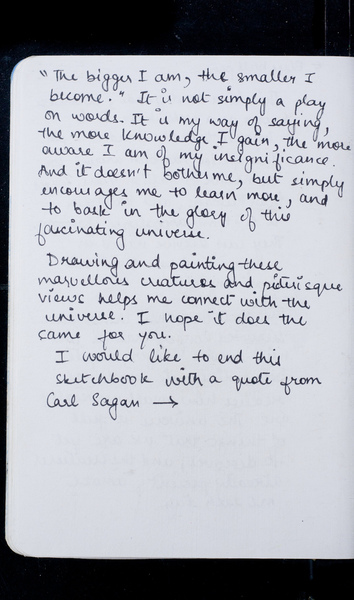 "The bigger I am, the smaller I
become." It is not simply a play
on words. It is my way of saying,
the more knowledge I gain, the more
aware I am of my insignificance.
And it doesn't bother me, but simply
encourages me to learn more, and
to bask in the glory of this
fascinating universe.
Drawing and painting these
marvellous creatures and picturisque
views helps me connect with the
universe. I hope it does the
same for you.
I would like to end this
sketchbook with a quote from
Carl Sagan →